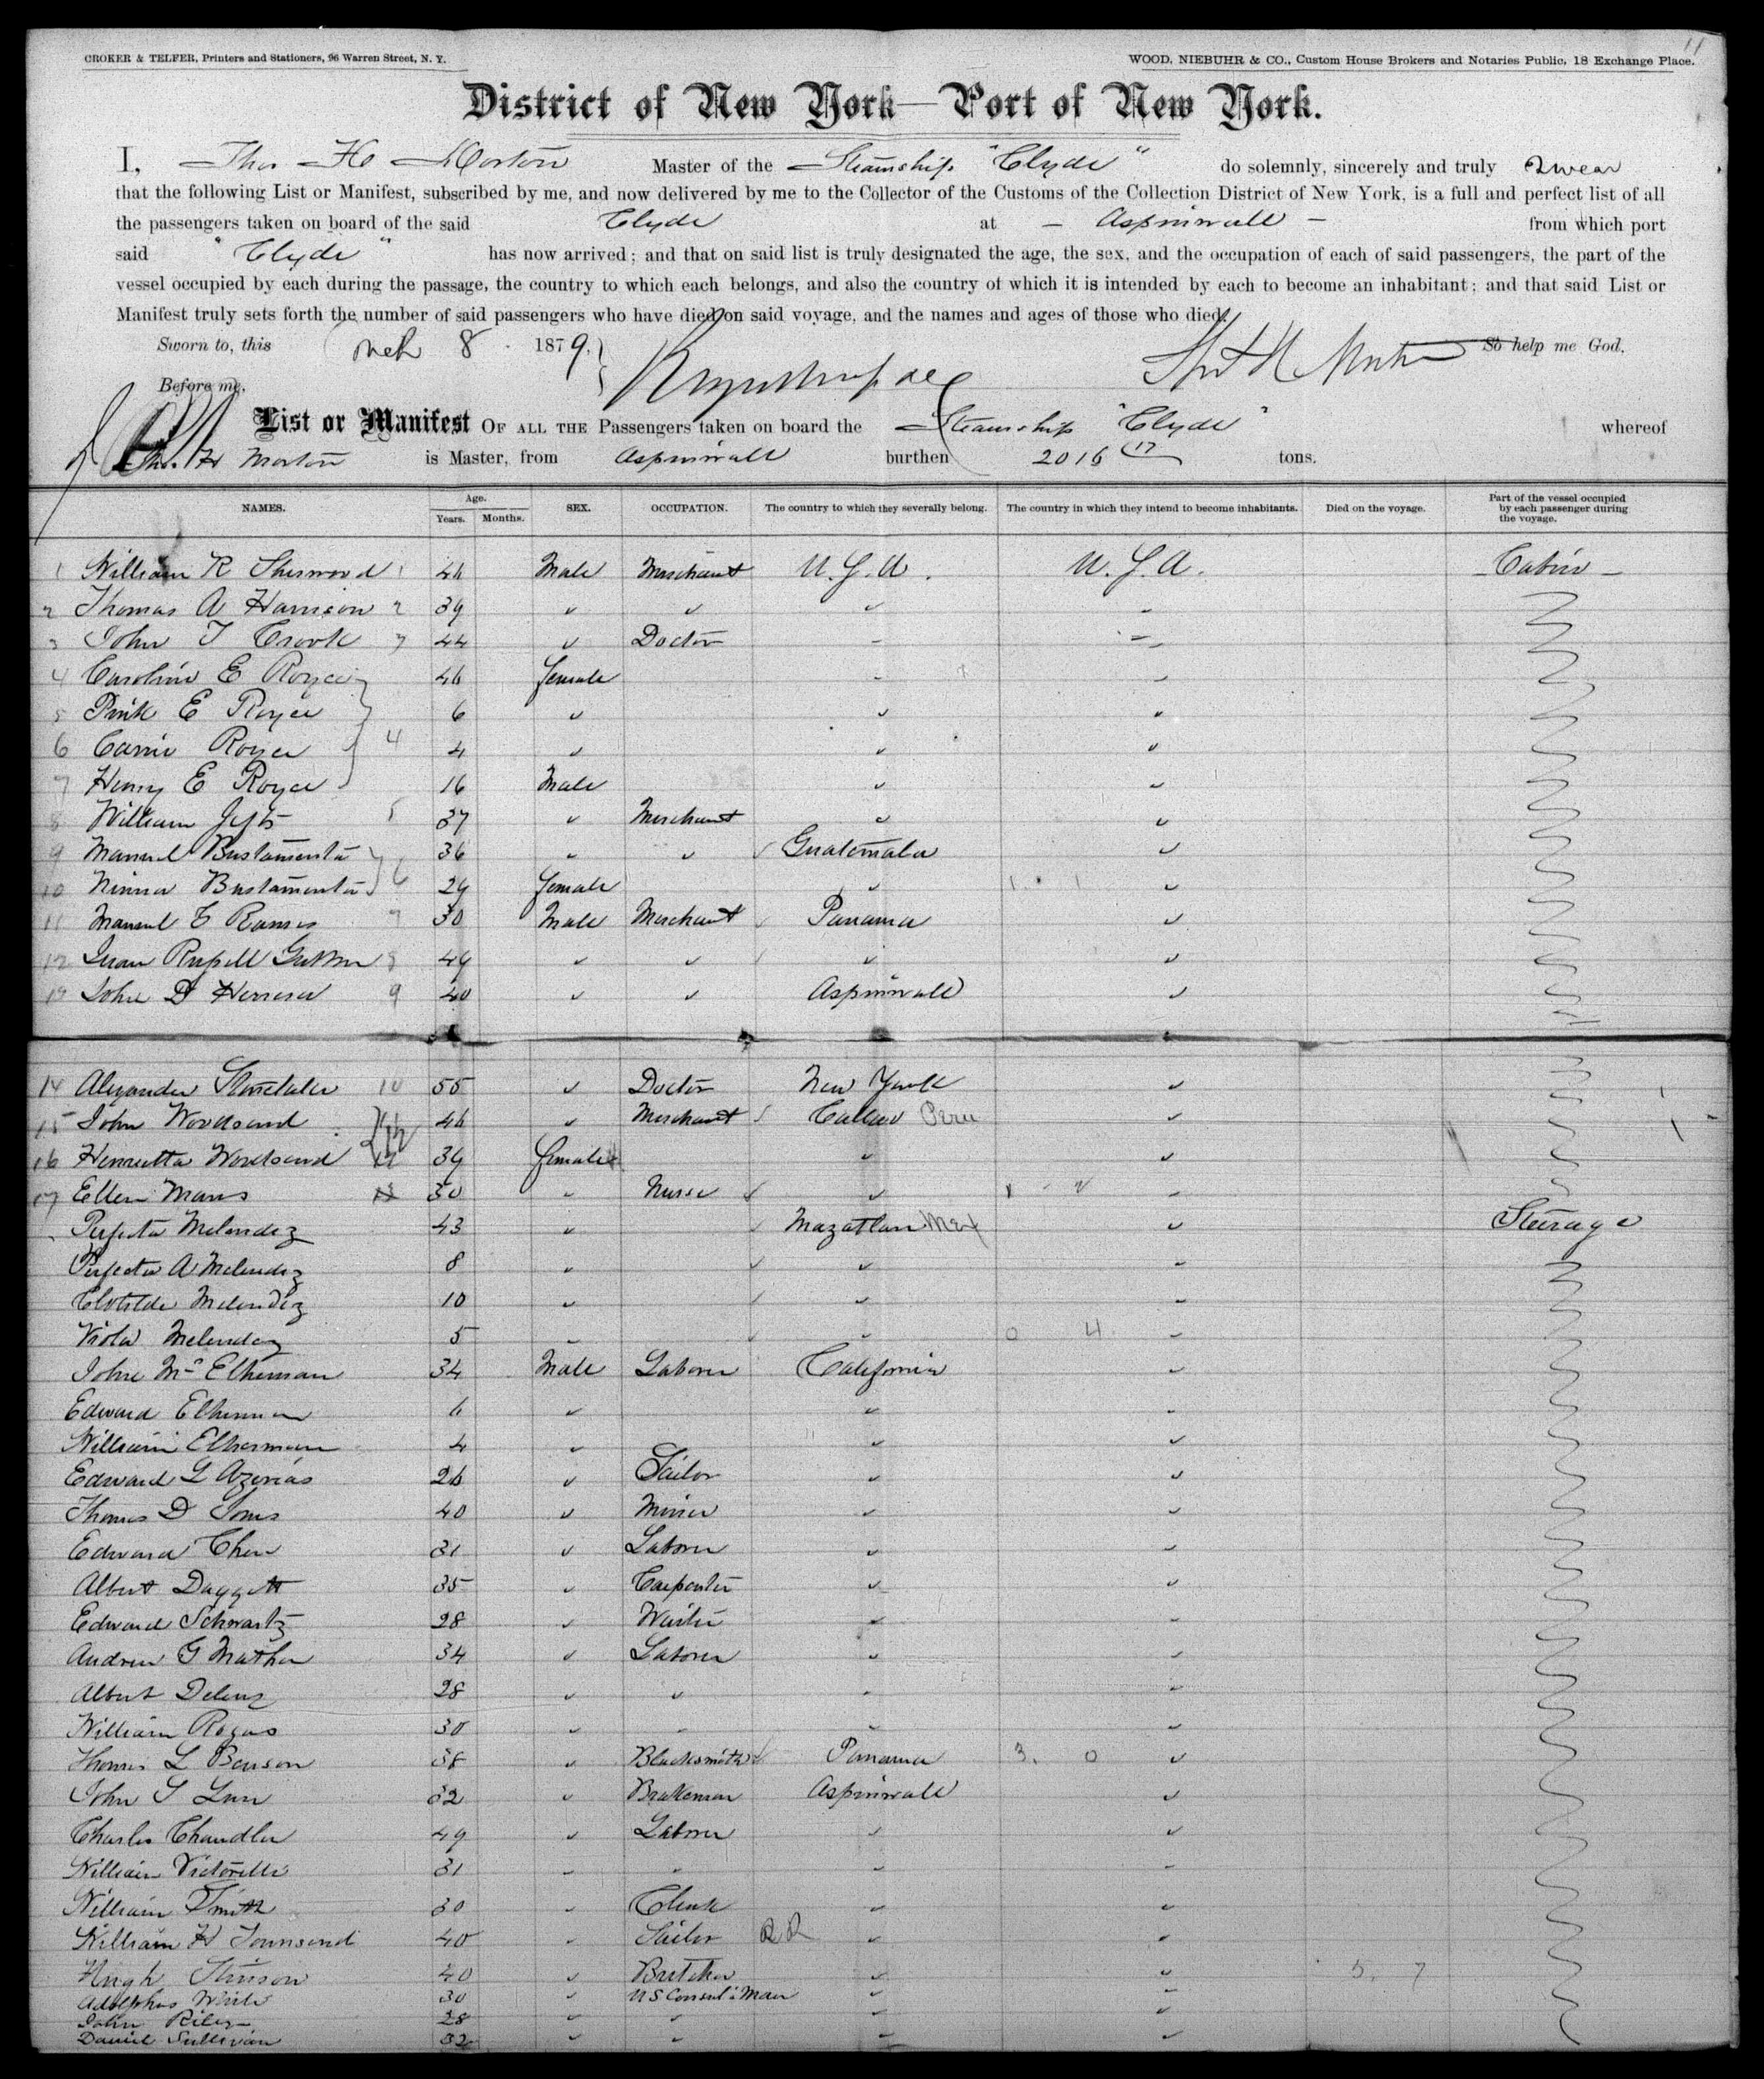 11
CROKER & TELFER, Printers and Stationers, 96 Warren Street, N. Y.
WOOD, NIEBUHR & CO., Custom House Brokers and Notaries Public, 18 Exchange Place.
District of New York—Port of New York.
I, Thos H Morton Master of the Steamship "Clyde" do solemnly, sincerely and truly swear
that the following List or Manifest, subscribed by me, and now delivered by me to the Collector of the Customs of the Collection District of New York, is a full and perfect list of all
the passengers taken on board of the said Clyde at – Aspinwall – from which port
said "Clyde" has now arrived; and that on said list is truly designated the age, the sex, and the occupation of each of said passengers, the part of the
vessel occupied by each during the passage, the country to which each belongs, and also the country of which it is intended by each to become an inhabitant; and that said List or
Manifest truly sets forth the number of said passengers who have died on said voyage, and the names and ages of those who died.
Sworn to, this Mch 8 1879. So help me God.
Before me,
List or Manifest OF ALL THE Passengers taken on board the Steamship "Clyde" whereof
Thos. H Morton is Master, from Aspinwall burthen 2016 17 tons.
NAMES. Age. Years. Months. SEX. OCCUPATION. The country to which they severally belong. The country in which they intend to become inhabitants. Died on the voyage. Part of the vessel occupied by each passenger during the voyage.
1 William R Sherwood 1 46 Male Merchant U.S.A. U.S.A. Cabin
2 Thomas A Harrison 2 39 " " " "
3 John T Crook 3 44 " Doctor " "
4 Caroline E Royce 46 female " "
5 Pink E Royce 6 " " "
6 Carrie Royce 4 4 " " "
7 Henry E Royce 16 Male " "
8 William Jefts 5 37 " Merchant " "
9 Manuel Bustamenta 36 " " Guatemala "
10 Ninna Bustamenta 6 29 female " "
11 Manuel Ramos 7 30 Male Merchant Panama "
12 Juan 8 49 " " " "
13 John D Herrera 9 40 " " Aspinwall "
14 Alexander 10 55 " Doctor New York "
15 John Woodsend 46 " Merchant Callao Peru "
16 Henrietta Woodsend 12 39 female " "
17 Ellen Mans 30 " Nurse " "
Perfecta Melendez 43 " Mazatlan Mex " Steerage
Perfecta A Melendez 8 " " "
Clotilde Melendez 10 " " "
Viola Melendez 5 " " 0 4 "
John Mc Elherman 34 Male Laborer California "
Edward Elherman 6 " " "
William Elherman 4 " " "
Edward L Azevias 26 " Sailor " "
Thomas D Soms 40 " Miner " "
Edward Chen 31 " Laborer " "
Albert Daggett 35 " Carpenter " "
Edward Schwartz 28 " Waiter " "
Andrew G Mather 34 " Laborer " "
Albert 28 " " " "
William Rogers 30 " " " "
Thomas L Benson 38 " Blacksmith Panama 3. 0 "
John S Lun 32 " Brakeman Aspinwall "
Charles Chandler 49 " Laborer " "
William Victorelli 31 " " " "
William Smith 30 " Clerk " "
William H Townsend 40 " Sailor " "
Hugh Stinson 40 " Butcher " " 5. 7
Adolphus White 30 " U S Consul's Man " "
John Riley 28 " " " "
Daniel Sullivan 32 " " " "